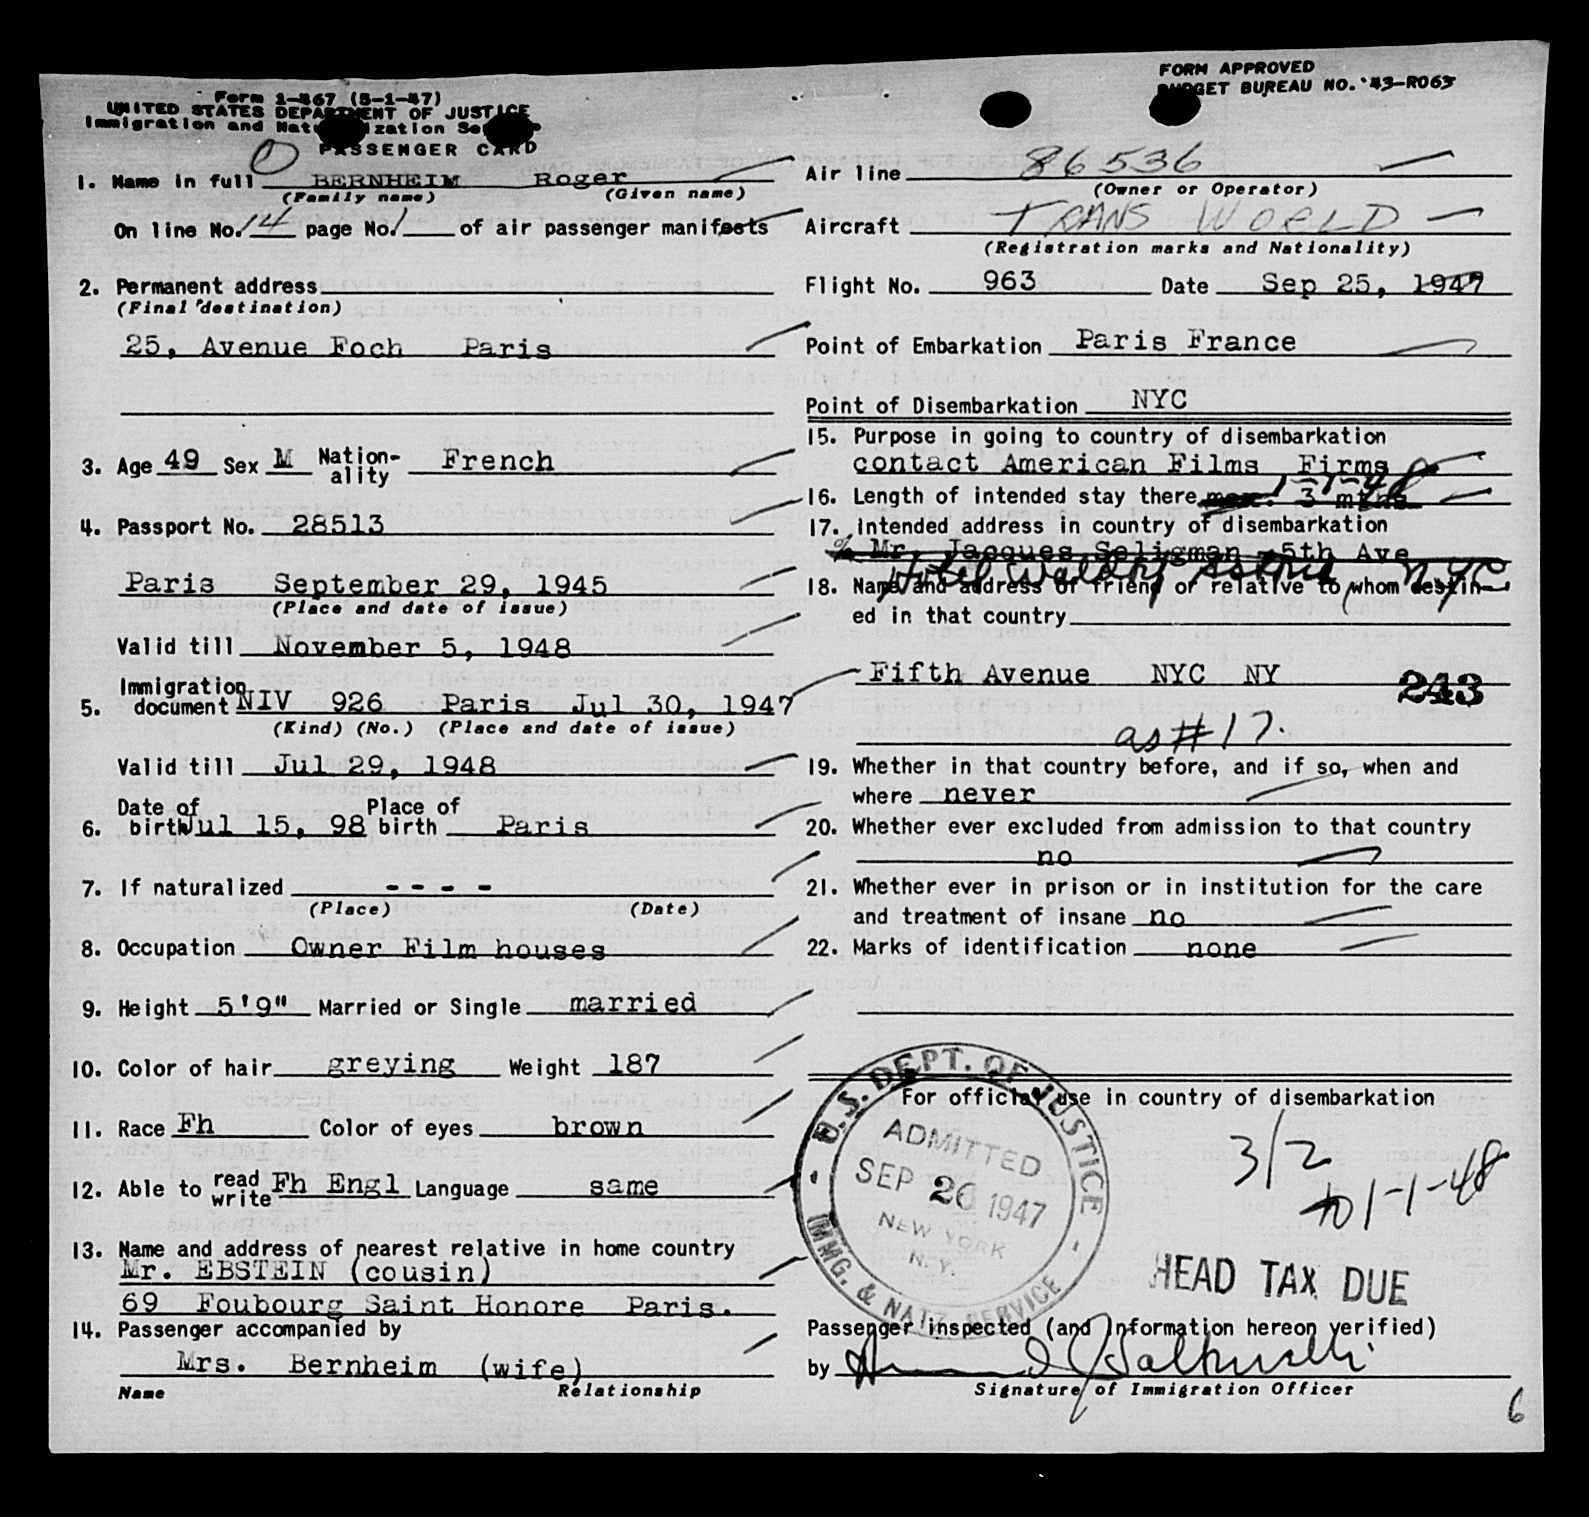 Form I-467 (5-1-47)
UNITED STATES DEPARTMENT OF JUSTICE
Immigration and Naturalization Service
PASSENGER CARD
FORM APPROVED
BUDGET BUREAU NO. 43-R063
1. Name in full BERNHEIM Roger
(Family name) (Given name)
On line No. 14 page No. 1 of air passenger manifests
2. Permanent address
(Final destination)
25, Avenue Foch Paris
3. Age 49 Sex M Nation-ality French
4. Passport No. 28513
Paris September 29, 1945
(Place and date of issue)
Valid till November 5, 1948
5. Immigration document NIV 926 Paris Jul 30, 1947
(Kind) (No.) (Place and date of issue)
Valid till Jul 29, 1948
6. Date of birth Jul 15, 98 Place of birth Paris
7. If naturalized - - - -
(Place) (Date)
8. Occupation Owner Film houses
9. Height 5'9" Married or Single married
10. Color of hair greying Weight 187
11. Race Fh Color of eyes brown
12. Able to read write Fh Engl Language same
13. Name and address of nearest relative in home country
Mr. EBSTEIN (cousin)
69 Foubourg Saint Honore Paris.
14. Passenger accompanied by
Mrs. Bernheim (wife)
Name Relationship
Air line 86536
(Owner or Operator)
Aircraft TRANS WORLD
(Registration marks and Nationality)
Flight No. 963 Date Sep 25, 1947
Point of Embarkation Paris France
Point of Disembarkation NYC
15. Purpose in going to country of disembarkation
contact American Films Firms
16. Length of intended stay there max. 3 mths 1-1-48
17. Intended address in country of disembarkation
% Mr. Jacques Seligman 5th Ave
Hotel Waldorf Astoria N.Y.C.
18. Name and address of friend or relative to whom destin-
ed in that country
Fifth Avenue NYC NY
243
as #17.
19. Whether in that country before, and if so, when and
where never
20. Whether ever excluded from admission to that country
no
21. Whether ever in prison or in institution for the care
and treatment of insane no
22. Marks of identification none
For official use in country of disembarkation
U.S. DEPT. OF JUSTICE
ADMITTED
SEP 26 1947
NEW YORK
N.Y.
IMMG. & NATZ. SERVICE
3/2
to 1-1-48
HEAD TAX DUE
Passenger inspected (and information hereon verified)
by
Signature of Immigration Officer
6